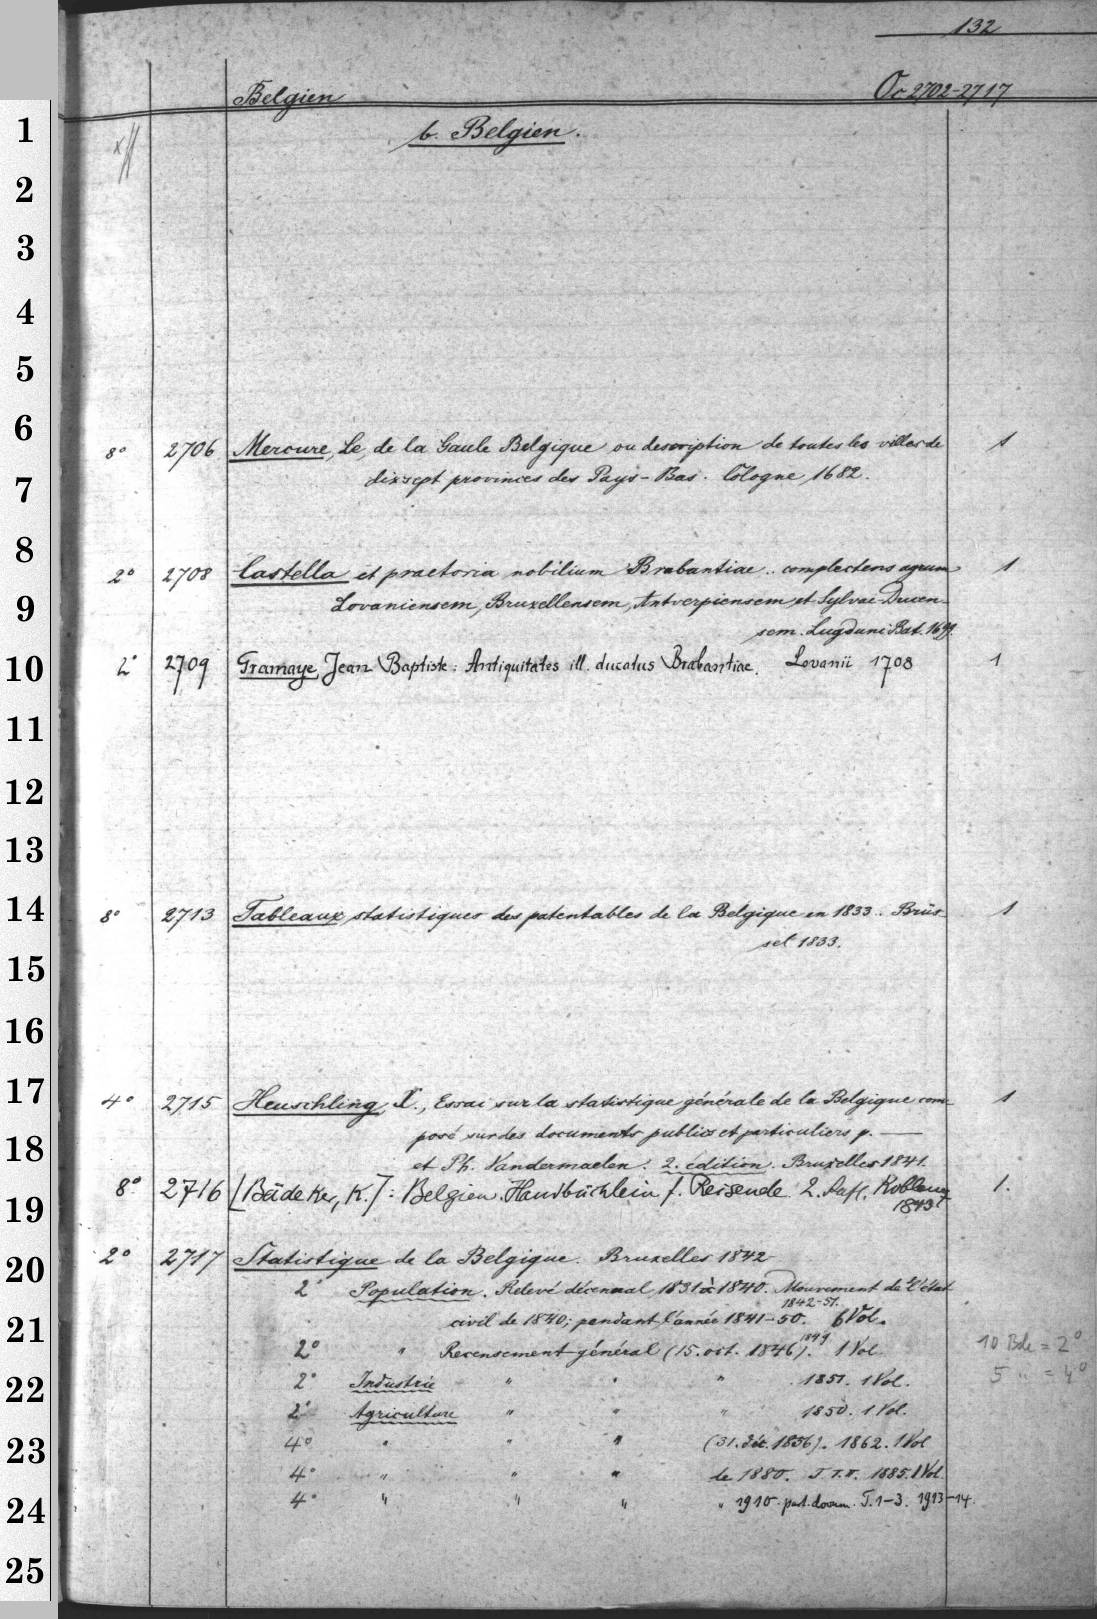 132
Belgien Oc 2702-2717
b. Belgien.
8° 2706 Mercure, Le, de la Gaule Belgique ou description de toutes les villes de 1
dixsept provinces des Pays-Bas. Cologne 1682.
2° 2708 Castella et praetoria nobilium Brabantiae.. complectens agrum 1
Lovaniensem, Bruxellensem, Antverpiensem et Sylvae-Ducen-
sem. Lugduni Bat.
2° 2709 Gramaye, Jean Baptiste: Antiquitates ill. ducatus Brabantiae. Lovanii 1708 1
8° 2713 Tableaux statistiques des patentables de la Belgique en 1833.. Brüs- 1
sel 1833.
4° 2715 Heuschling, X., Essai sur la statistique générale de la Belgique com- 1
posé sur des documents publics et particuliers p. —
et Ph. Vandermaelen. 2. édition. Bruxelles 1841.
8° 2716 [Bädeker, K.]: Belgien. Handbüchlein f. Reisende 2. Aufl. Koblenz 1.
1843
2° 2717 Statistique de la Belgique. Bruxelles 1842
2° Population. Relevé décennal 1831 à 1840. Mouvement de l'état
1842-51.
civil de 1840; pendant l'année 1841-50. 6 Vol.
2° " Recensement général (15. oct. 1846). 1849 1 Vol. 10 Bde = 2°
2° Industrie " " " 1851. 1 Vol. 5 " = 4°
2° Agriculture " " " 1850. 1 Vol.
4° " " " (31. déc. 1856). 1862. 1 Vol
4° " " " de 1880. 1885. 1 Vol.
4° " " " " 1910. part. docum. T. 1-3. 1913-14.
1
2
3
4
5
6
7
8
9
10
11
12
13
14
15
16
17
18
19
20
21
22
23
24
25